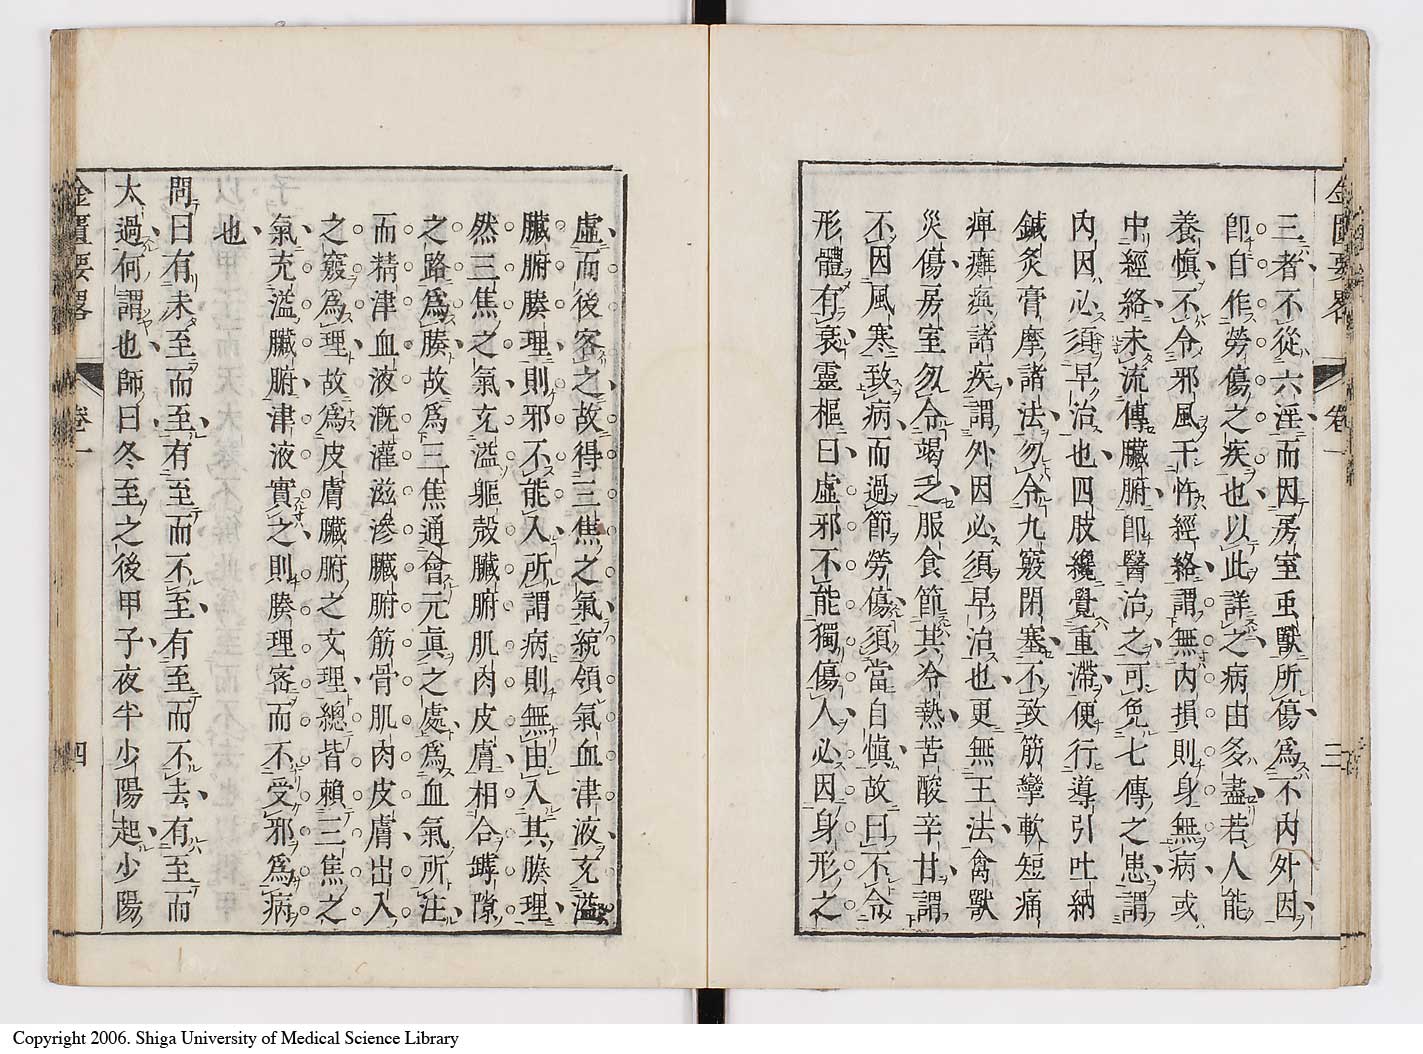 金匱要畧 卷一 三
三者不從六淫而因房室虫獸所傷爲不内外因
卽自作勞傷之疾也以此詳之病由多盡若人能
養愼不令邪風干忤經絡謂無内損則身無病或
中經絡未流傳臟腑卽醫治之可免七傳之患謂
内因必須早治也四肢纔覺重滯便行導引吐納
鍼灸膏摩諸法勿令九竅閉塞不致筋攣軟短痛
痺癱瘓諸疾謂外因必須早治也更無王法禽獸
災傷房室勿令竭乏服食節其冷熱苦酸辛甘謂
不因風寒致病而過節勞傷須當自愼故曰不令
形體有衰靈樞曰虛邪不能獨傷人必因身形之
虛而後客之故得三焦之氣統領氣血津液充溢
臟腑腠理則邪不能入所謂病則無由入其腠理
然三焦之氣充溢軀殼臟腑肌肉皮膚相合罅隙
之路爲腠故爲三焦通會元眞之處爲血氣所注
而精津血液漑灌滋滲臟腑筋骨肌肉皮膚出入
之竅爲理故爲皮膚臟腑之文理總皆賴三焦之
氣充溢臟腑津液實之則腠理密而不受邪爲病
也
問曰有未至而至有至而不至有至而不去有至而
太過何謂也師曰冬至之後甲子夜半少陽起少陽
金匱要畧 卷一 四
Copyright 2006. Shiga University of Medical Science Library